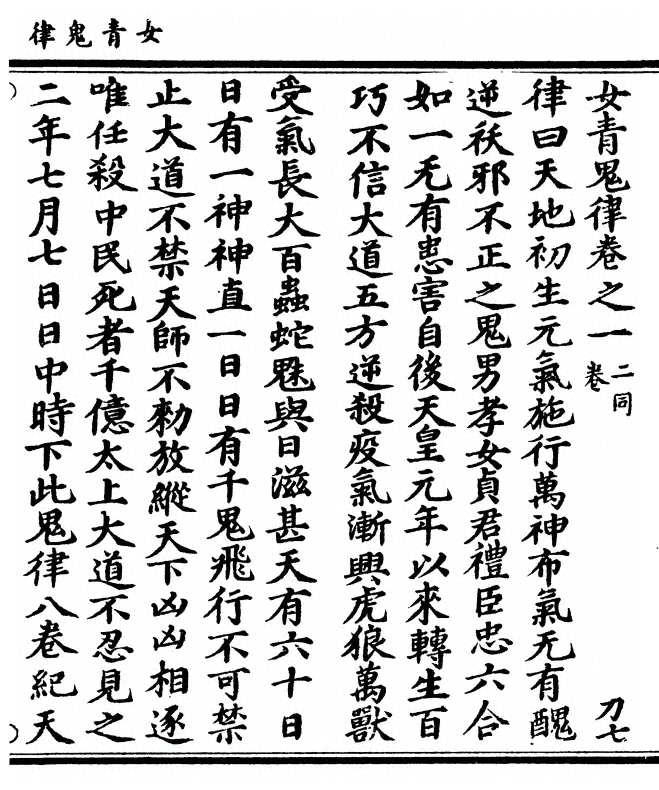 女青鬼律
女青鬼律卷之一 二同卷 力七
律曰天地初生元氣施行萬神布氣无有醜
逆祅邪不正之鬼男孝女貞君禮臣忠六合
如一无有患害自後天皇元年以來轉生百
巧不信大道五方逆殺疫氣漸興虎狼萬獸
受氣長大百蟲蛇魅與日滋甚天有六十日
日有一神神直一日日有千鬼飛行不可禁
止大道不禁天師不勑放縱天下凶凶相逐
唯任殺中民死者千億太上大道不忍見之
二年七月七日日中時下此鬼律八卷紀天